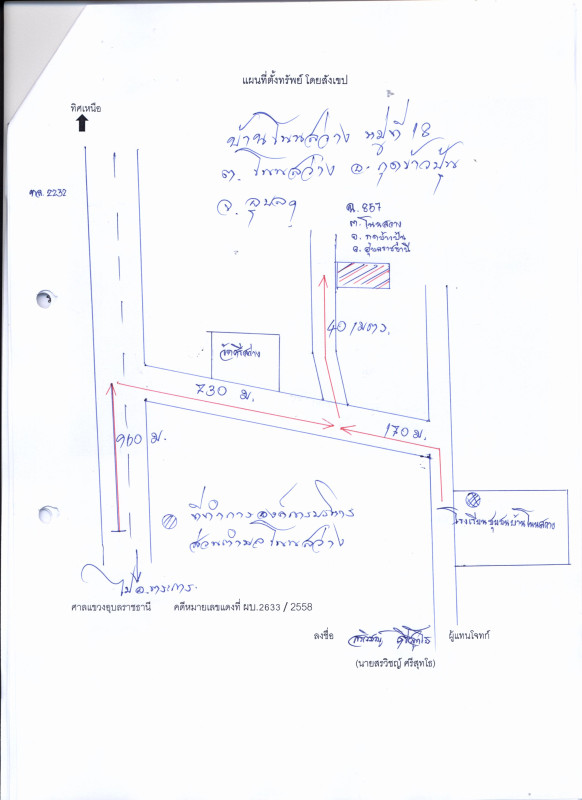 แผนที่ตั้งทรัพย์ โดยสังเขป
ทิศเหนือ
บ้านโนนสว่าง หมู่ที่ 18
ต. โนนสว่าง อ. กุดข้าวปุ้น
จ. อุบลฯ
ทล. 2232
ฉ. 857
ต. โนนสว่าง
อ. กุดข้าวปุ้น
จ. อุบลราชธานี
40 เมตร.
วัดศรีสว่าง
730 ม.
170 ม.
960 ม.
ที่ทำการองค์การบริหาร
ส่วนตำบลโนนสว่าง
โรงเรียนชุมชนบ้านโนนสว่าง
ไป อ.
ศาลแขวงอุบลราชธานี คดีหมายเลขแดงที่ ผบ.2633 / 2558
ลงชื่อ ผู้แทนโจทก์
(นายสรวิชญ์ ศรีสุทโธ)